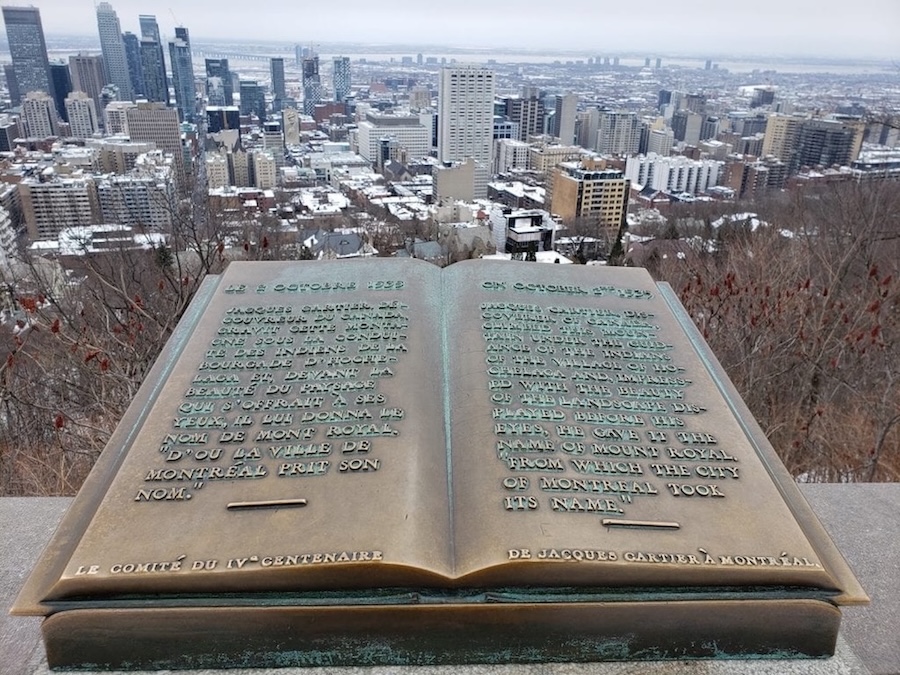 LE 2 OCTOBRE 1535
JACQUES CARTIER DÉ-
COUVREUR DU CANADA,
GRAVIT CETTE MONTA-
GNE SOUS LA CONDUI-
TE DES INDIENS DE LA
BOURGADE D'HOCHE-
LAGA ET, DEVANT LA
BEAUTÉ DU PAYSAGE
QUI S'OFFRAIT À SES
YEUX, IL LUI DONNA LE
NOM DE MONT ROYAL.
"D'OU LA VILLE DE
MONTRÉAL PRIT SON
NOM."
ON OCTOBER 2ND 1535
JACQUES CARTIER, DIS-
COVERER OF CANADA,
CLIMBED THIS MOUN-
TAIN UNDER THE GUID-
ANCE OF THE INDIANS
OF THE VILLAGE OF HO-
CHELAGA AND, IMPRESS-
ED WITH THE BEAUTY
OF THE LANDSCAPE DIS-
PLAYED BEFORE HIS
EYES, HE GAVE IT THE
NAME OF MOUNT ROYAL.
"FROM WHICH THE CITY
OF MONTREAL TOOK
ITS NAME."
LE COMITÉ DU IVᴱ CENTENAIRE DE JACQUES CARTIER À MONTRÉAL.